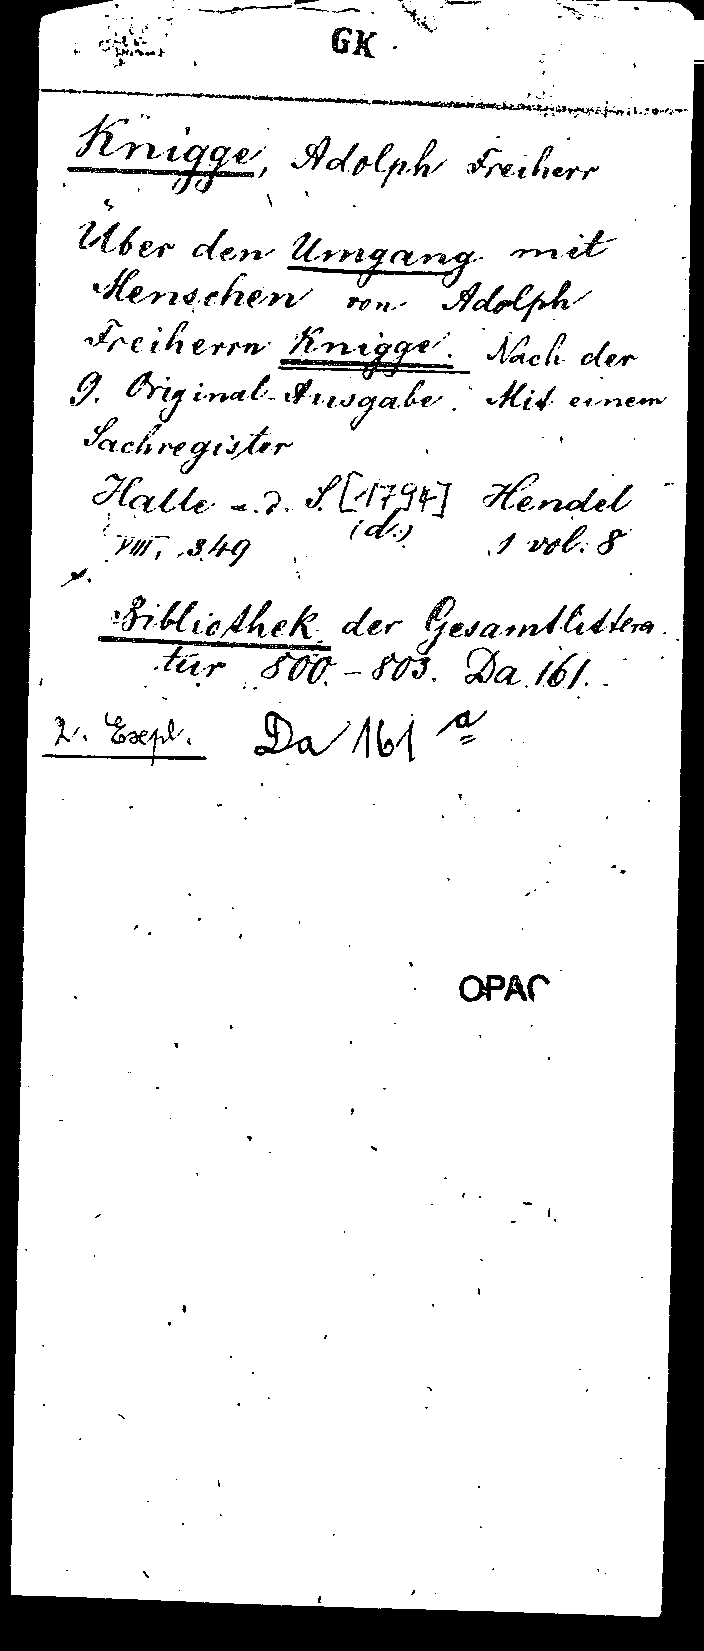 GK
Knigge, Adolph Freiherr
Über den Umgang mit
Menschen von Adolph
Freiherrn Knigge. Nach der
9. Original-Ausgabe. Mit einem
Sachregister
Halle a. d. S. [1794] Hendel
(d.)
VIII, 349 1 vol. 8
x.
Bibliothek der Gesamtlittera
tur 800.-803. Da 161.
2. Exepl. Da 161 a
OPAC